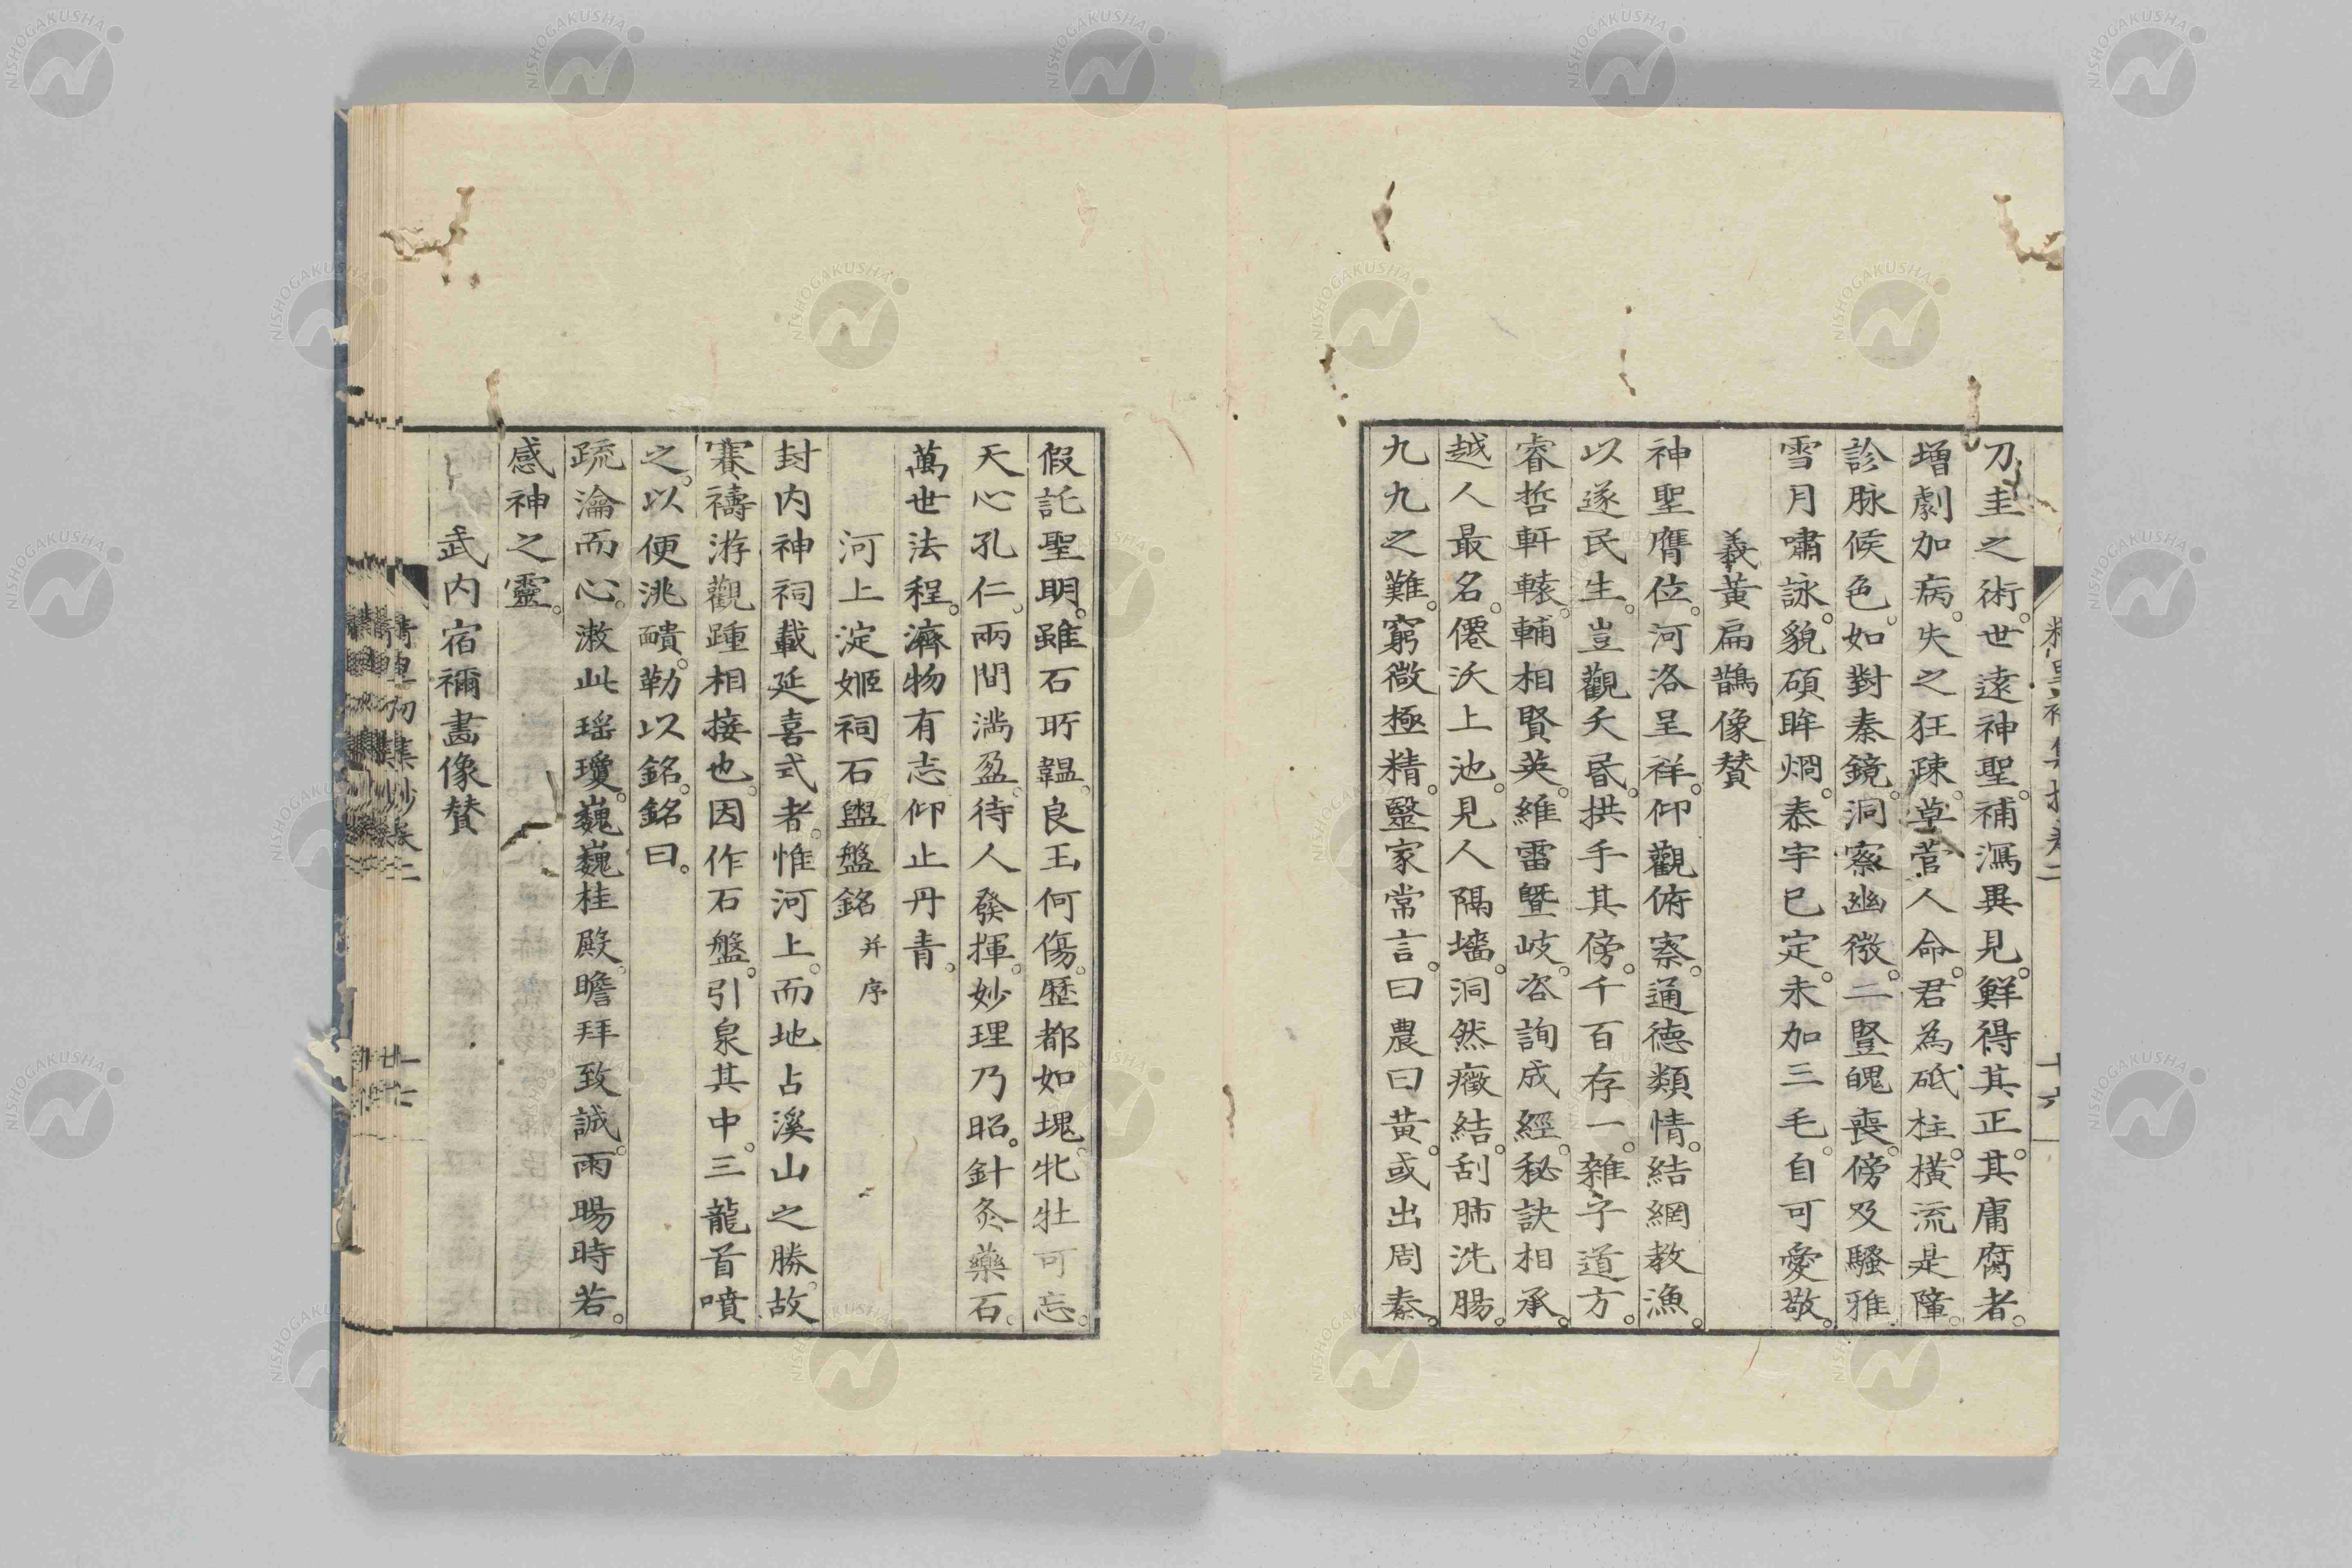 刀圭之術。世遠神聖。補瀉異見。鮮得其正。其庸腐者。
増劇加病。失之狂疎。草菅人命。君為砥柱。橫流是障。
診脉候色。如對秦鏡。洞察幽微。二豎魄喪。傍及騷雅
雪月嘯詠。貌碩眸炯。泰宇已定。未加三毛。自可愛敬。
義黃扁鵲像賛
神聖膺位。河洛呈祥。仰觀俯察。通德類情。結網教漁。
以遂民生。豈觀夭昬。拱手其傍。千百存一。雜予道方。
睿哲軒轅。輔相賢英。維雷曁岐。咨詢成經。秘訣相承。
越人最名。僊沃上池。見人隔墻。洞然癥結。刮肺洗腸。
九九之難。窮微極精。毉家常言。曰農曰黃。或出周秦。
假託聖明。雖石所韞。良玉何傷。歷都如塊。牝牡可忘。
天心孔仁。兩間滿盈。待人發揮。妙理乃昭。針灸藥石。
萬世法程。濟物有志。仰止丹青。
河上淀姬祠石盥盤銘 并序
封内神祠載延喜式者。惟河上。而地占溪山之勝。故
賽禱游觀踵相接也。因作石盤。引泉其中。三龍首噴
之。以便洮靧。勒以銘。銘曰。
疏瀹而心。漱此瑤瓊。巍巍桂殿。瞻拜致誠。雨暘時若。
感神之靈。
武内宿禰畫像賛